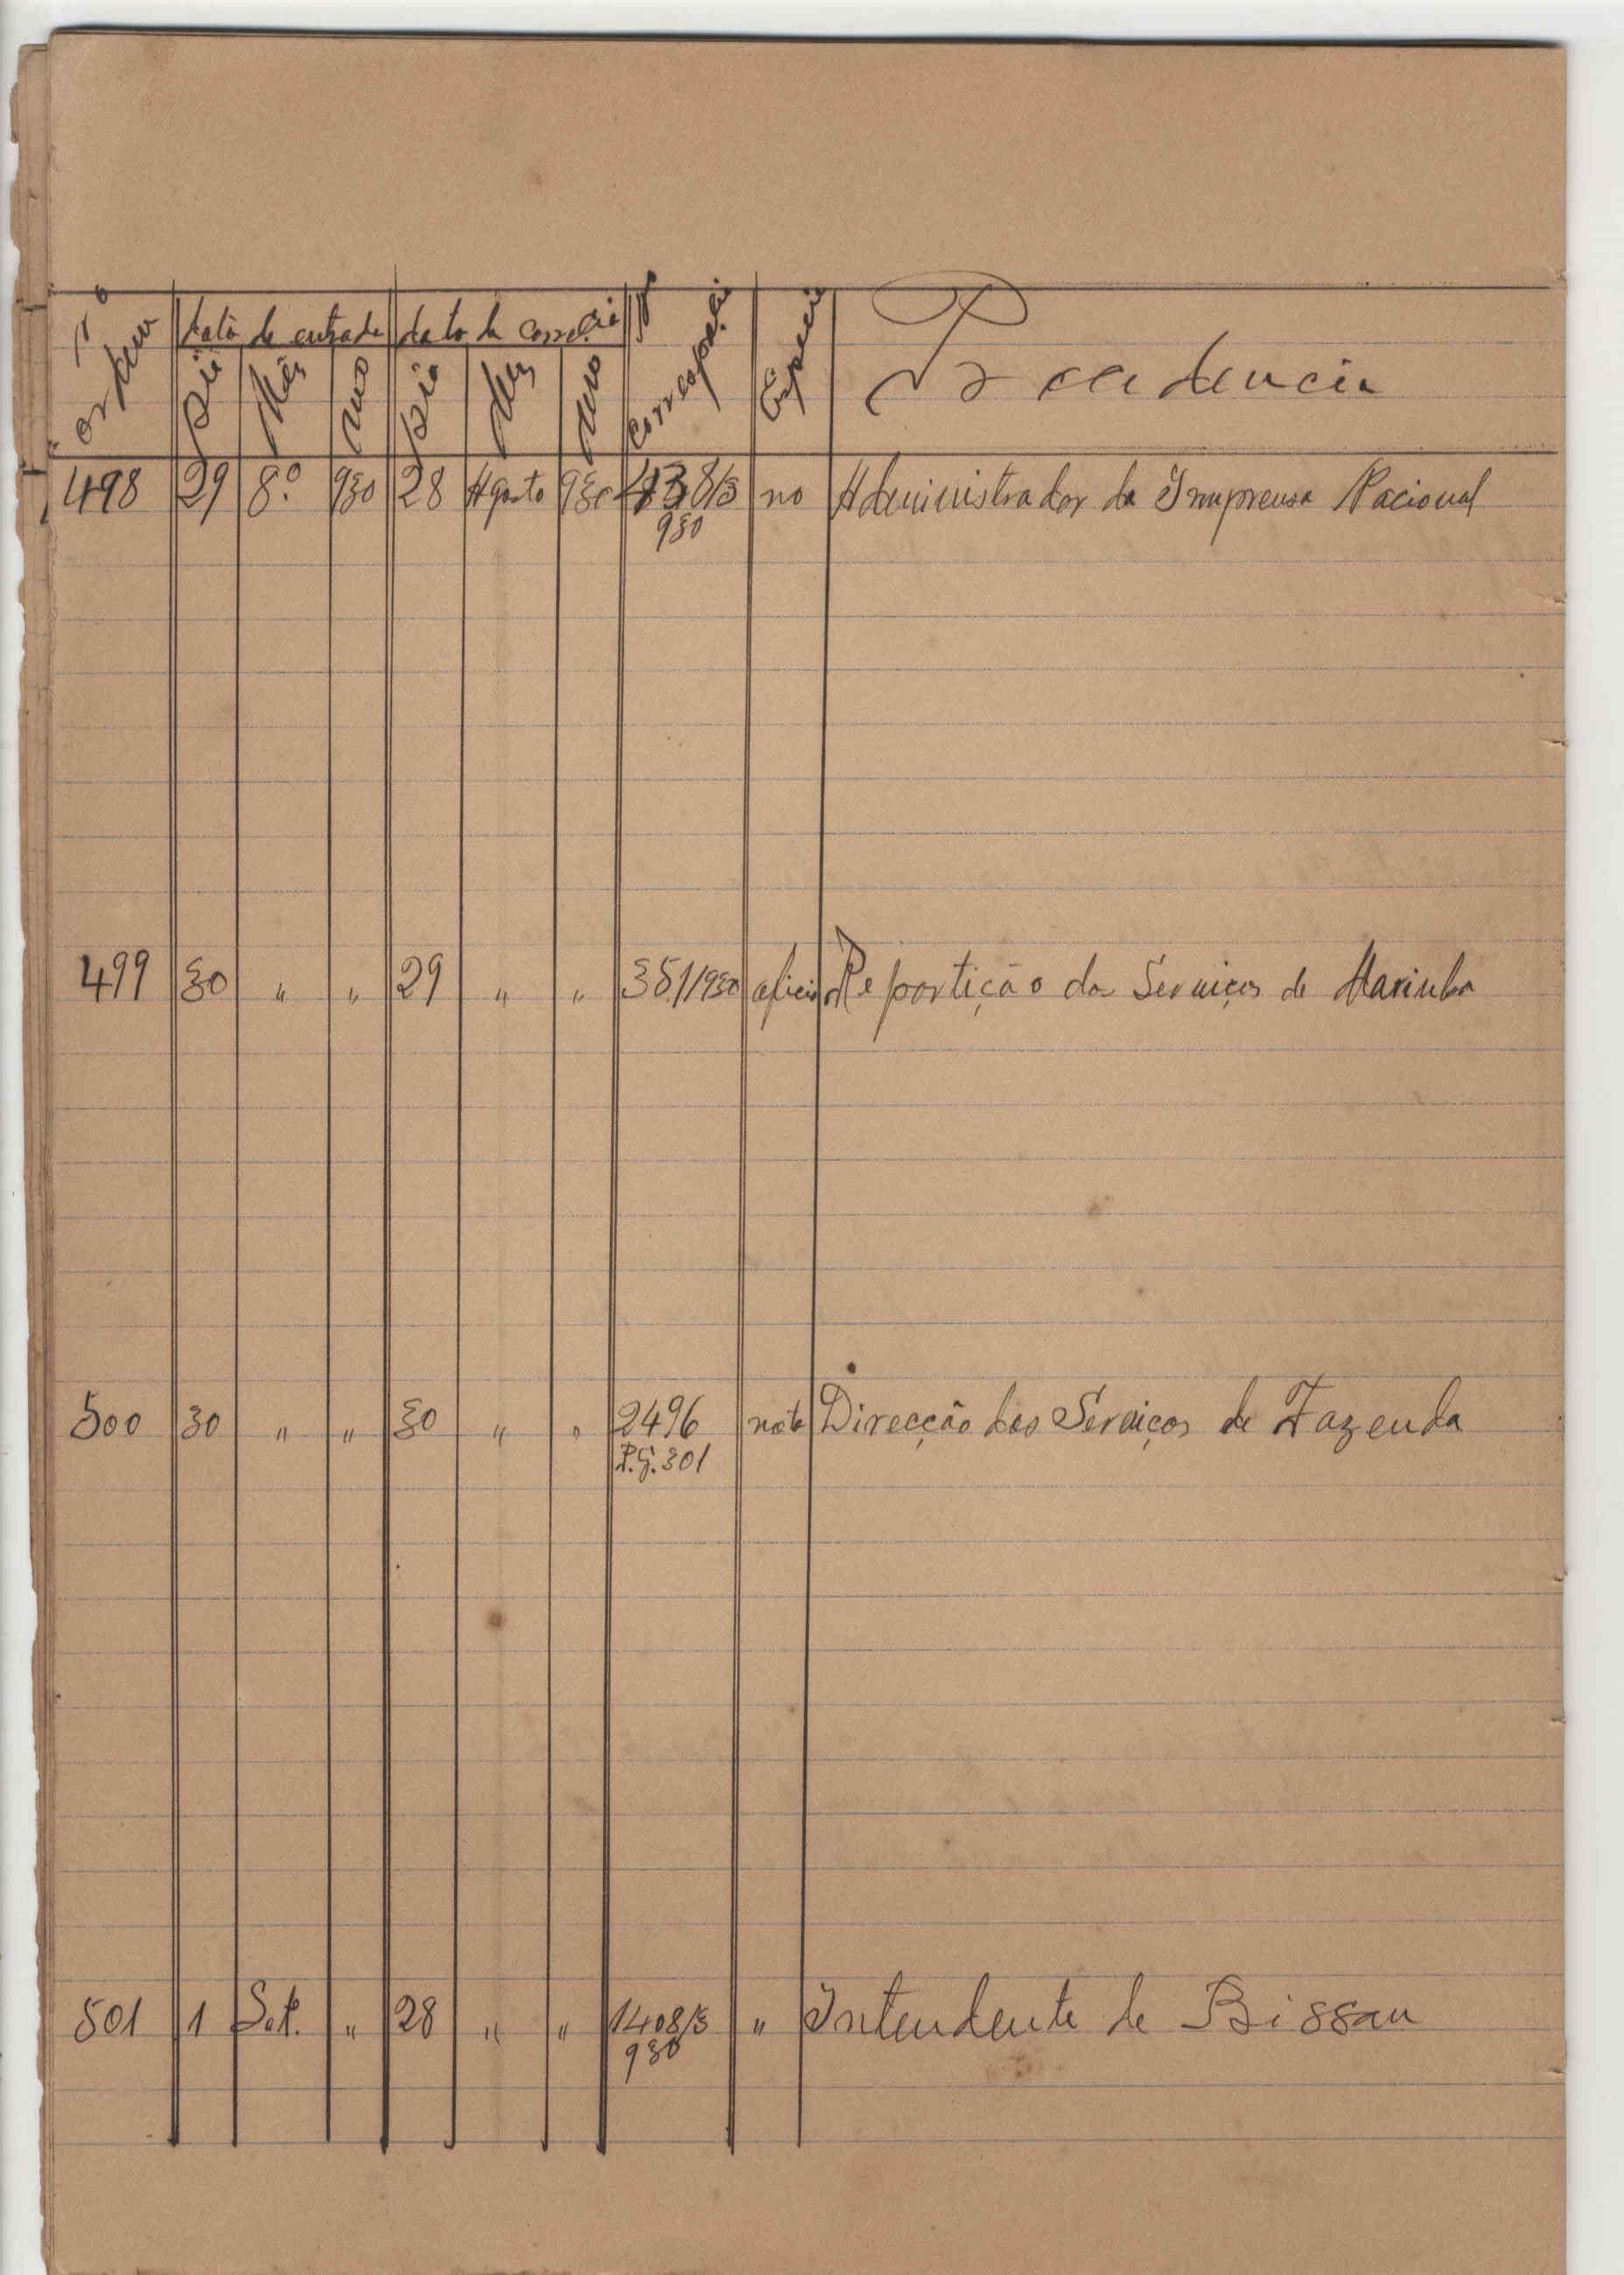 Nº ordem data de entrada data da corresp.cia Nº corresp.cia Especie Procedencia
Dia Mês Ano Dia Mês Ano
498 29 8.º 930 28 Agosto 930 8/3 no Administrador da Imprensa Nacional
930
499 30 " " 29 " " 351/930 oficio Repartição da Serviços de Marinha
500 30 " " 30 " " 2496 nota Direcção dos Serviços de Fazenda
P.G. 301
501 1 Set. " 28 " " 1408/3 " Intendente de Bissau
930